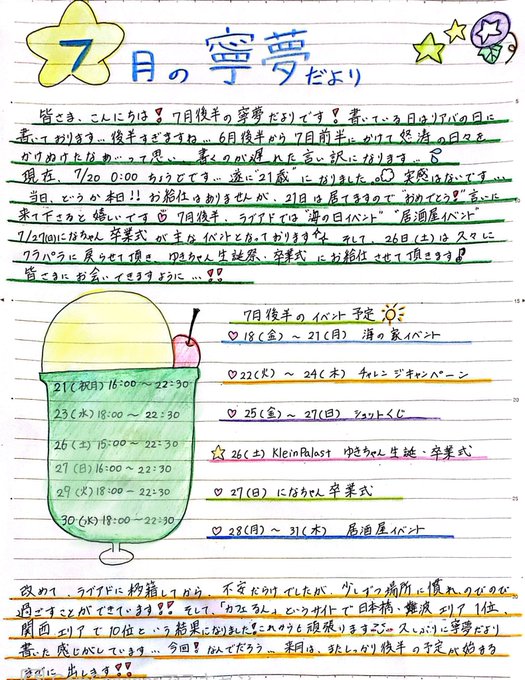 7月の寧夢だより
皆さま、こんにちは❗7月後半の寧夢だよりです❗書いている日はリアバの日に
書いております…後半すぎますね…6月後半から7月前半にかけて怒涛の日々を
かけぬけたなあ…って思い…書くのが遅れた言い訳になります…💦
現在、7/20 0:00ちょうどです…遂に"21歳"になりました…実感はないです…
当日、という本日!!お給仕はありませんが、21日は居てますので"おめでとう!"言いに
来て下さると嬉しいです♡7月後半、ラブアドでは"海の日イベント""居酒屋イベント"
7/27(日)になちゃん卒業式が主なイベントとなっております✨そして、26日(土)は久々に
クラパラに戻らせて頂き、ゆきちゃん生誕祭、卒業式にお給仕させて頂きます♪
皆さまにお会いできますように…!!
7月後半のイベント予定
♡18(金)〜21(月) 海の家イベント
♡22(火)〜24(木) チャレンジキャンペーン
♡25(金)〜27(日) ショットくじ
☆26(土) KleinPalast ゆきちゃん生誕・卒業式
♡27(日) になちゃん卒業式
♡28(月)〜31(木) 居酒屋イベント
21(祝月)16:00〜22:30
23(水)18:00〜22:30
26(土)15:00〜22:30
27(日)16:00〜22:30
29(火)18:00〜22:30
30(水)18:00〜22:30
改めて、ラブアドに移籍してから、不安だらけでしたが、少しずつ場所に慣れ、のびのび
過ごすことができています!!そして、「カフェるん」というサイトで日本橋・難波エリア1位、
関西エリアで10位という結果になりました!これからも頑張ります…久しぶりに寧夢だより
書いた感じがしています…今回!なんでだろう…来月は、またしっかり後半の予定が始まる
までに出します!!